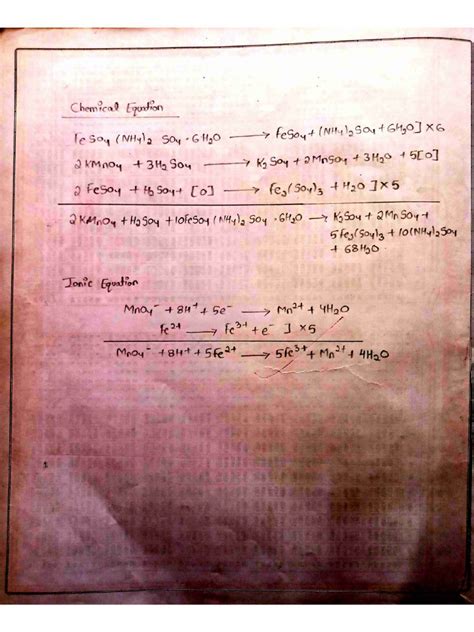 Chemical Equation
FeSO4 (NH4)2 SO4 · 6H2O → FeSO4 + (NH4)2SO4 + 6H2O ] × 6
2 KMnO4 + 3H2SO4 → K2SO4 + 2MnSO4 + 3H2O + 5[O]
2 FeSO4 + H2SO4 + [O] → Fe2(SO4)3 + H2O ] × 5
2 KMnO4 + H2SO4 + 10FeSO4 (NH4)2 SO4 · 6H2O → K2SO4 + 2MnSO4 +
5Fe2(SO4)3 + 10(NH4)2SO4
+ 68H2O
Ionic Equation
MnO4⁻ + 8H⁺ + 5e⁻ → Mn²⁺ + 4H2O
Fe²⁺ → Fe³⁺ + e⁻ ] × 5
MnO4⁻ + 8H⁺ + 5Fe²⁺ → 5Fe³⁺ + Mn²⁺ + 4H2O